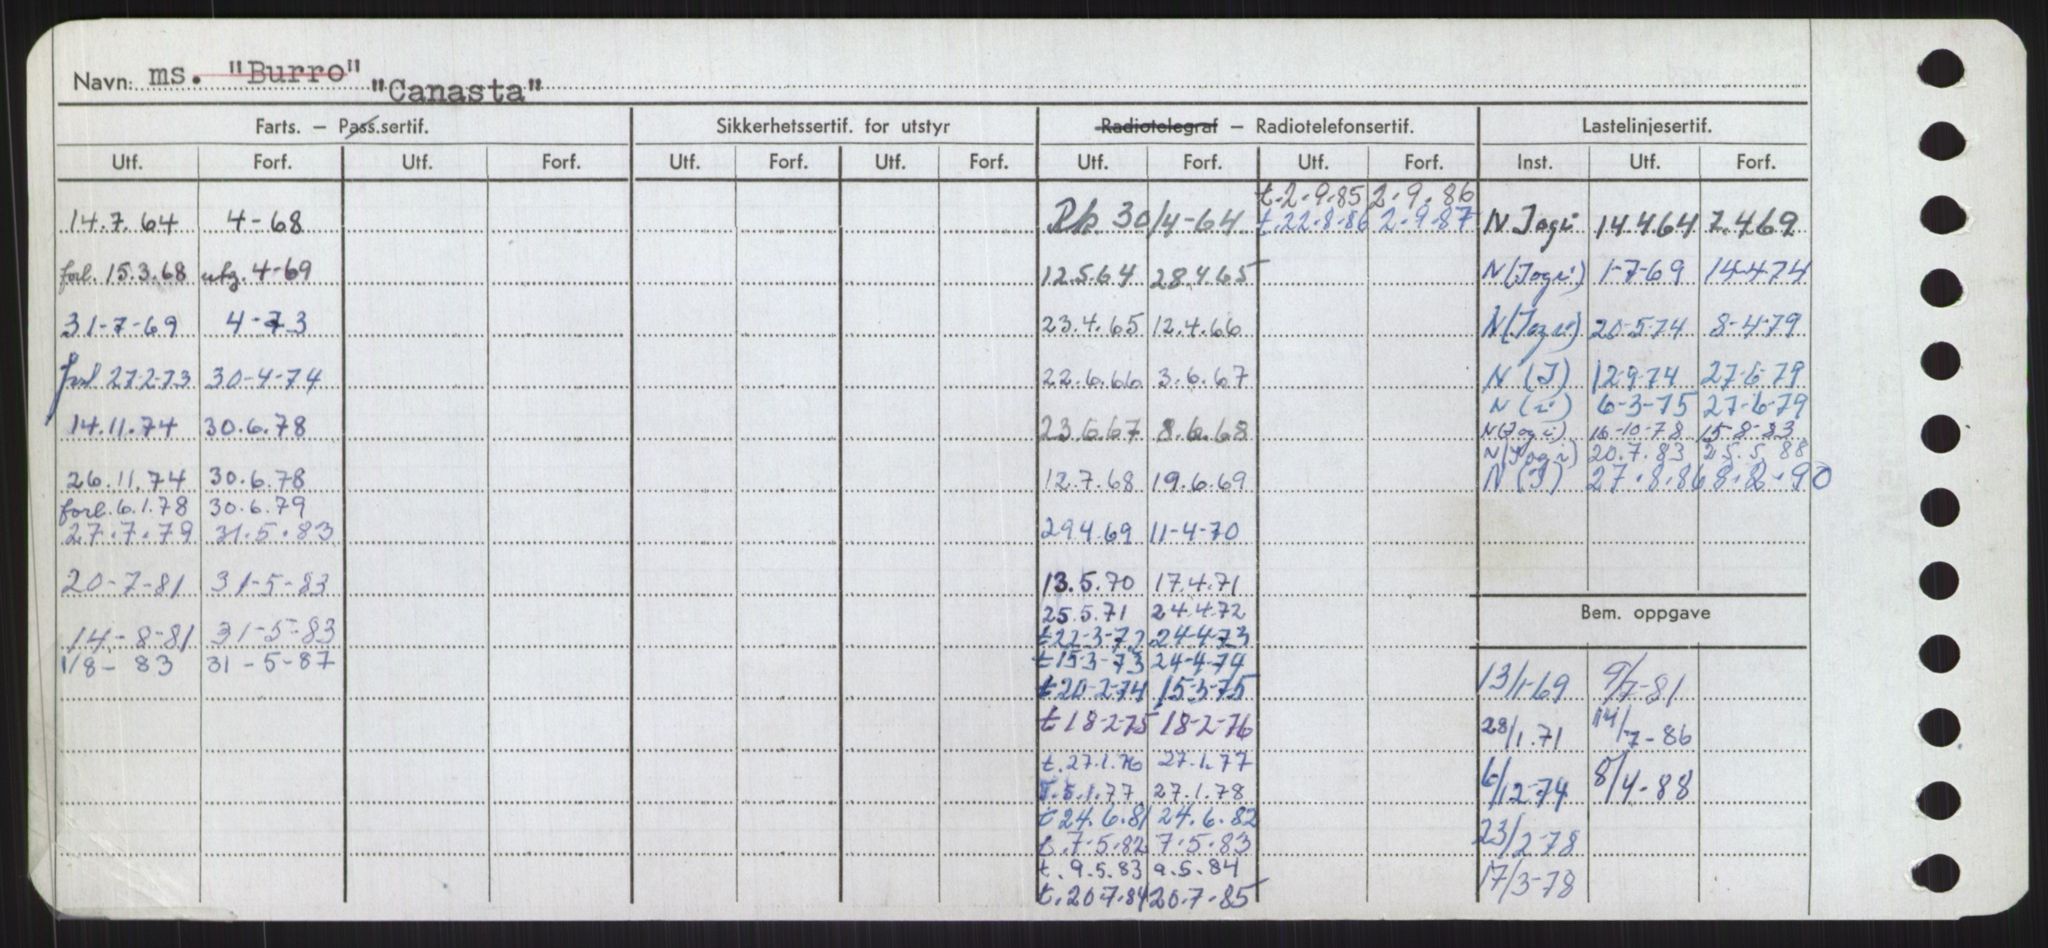 Navn: ms. "Burro"
"Canasta"
Farts. – Pass.sertif. Sikkerhetssertif. for utstyr Radiotelegraf – Radiotelefonsertif. Lastelinjesertif.
Utf. Forf. Utf. Forf. Utf. Forf. Utf. Forf. Utf. Forf. Utf. Forf. Inst. Utf. Forf.
t.2.9.85 2.9.86
14.7.64 4-68 30/4-64 t.22.8.86 2.9.87 N Jogi 14.4.64 7.4.69
forl. 15.3.68 4-69 12.5.64 28.4.65 N(Jogi) 1-7-69 14-4-74
31-7-69 4-73 23.4.65 12.4.66 N(Jogi) 20-5-74 8-4-79
forl 27-2-73 30-4-74 22.6.66 3.6.67 N (J) 12-9-74 27-6-79
N (i) 6-3-75 27-6-79
14.11.74 30.6.78 23.6.67 8.6.68 N(Jogi) 16-10-78 15-8-83
N(Jogi) 20.7.83 25.5.88
26.11.74 30.6.78 12.7.68 19.6.69 N (J) 27.8.86 8.2.90
forl. 6.1.78 30.6.79
27.7.79 31.5.83 29.4.69 11-4-70
20-7-81 31-5-83 13.5.70 17.4.71
25.5.71 24.4.72 Bem. oppgave
14-8-81 31-5-83 t 22-3-72 24-4-73
1/8-83 31-5-87 t 15-3-73 24-4-74
t 20-2-74 15-3-75 13/1-69 9/7-81
t 18-2-75 18-2-76 28/1.71 14/7-86
t. 27.1.76 27.1.77
T. 5.1.77 27.1.78 6/12-74 8/4-88
t 24.6.81 24.6.82
t. 7-5.82 7.5.83 23/2-78
t. 9.5.83 9.5.84
t. 20.7.84 20.7.85 17/3-78